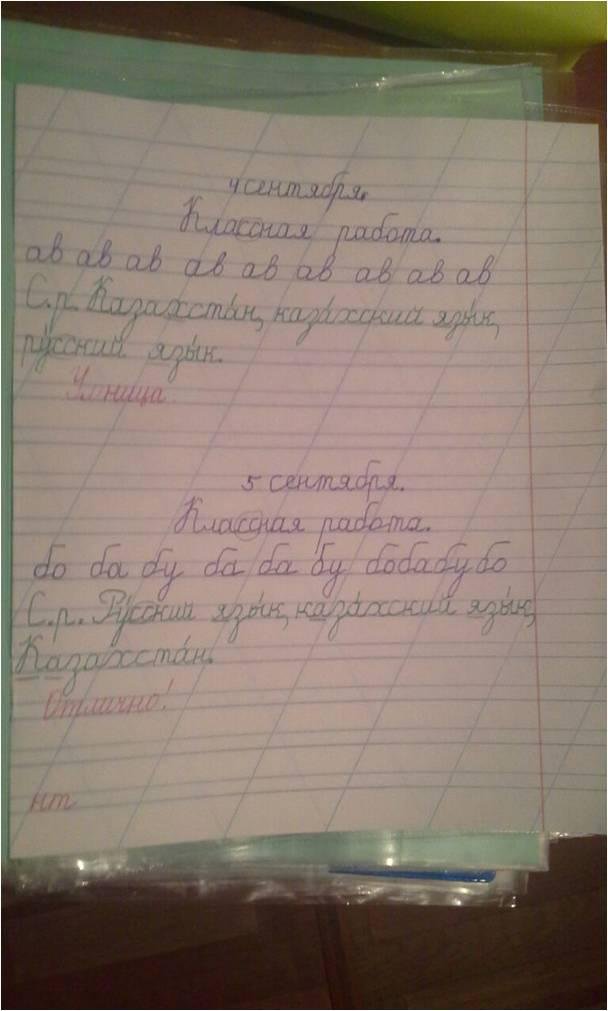 4 сентября.
Классная работа.
ав ав ав ав ав ав ав ав ав
С.р. Казахста́н, каза́хский язы́к,
ру́сский язы́к.
Умница.
5 сентября.
Классная работа.
бо ба бу ба ба бу бобабу бо
С.р. Ру́сский язы́к, каза́хский язы́к,
Казахста́н.
Отлично!
нт